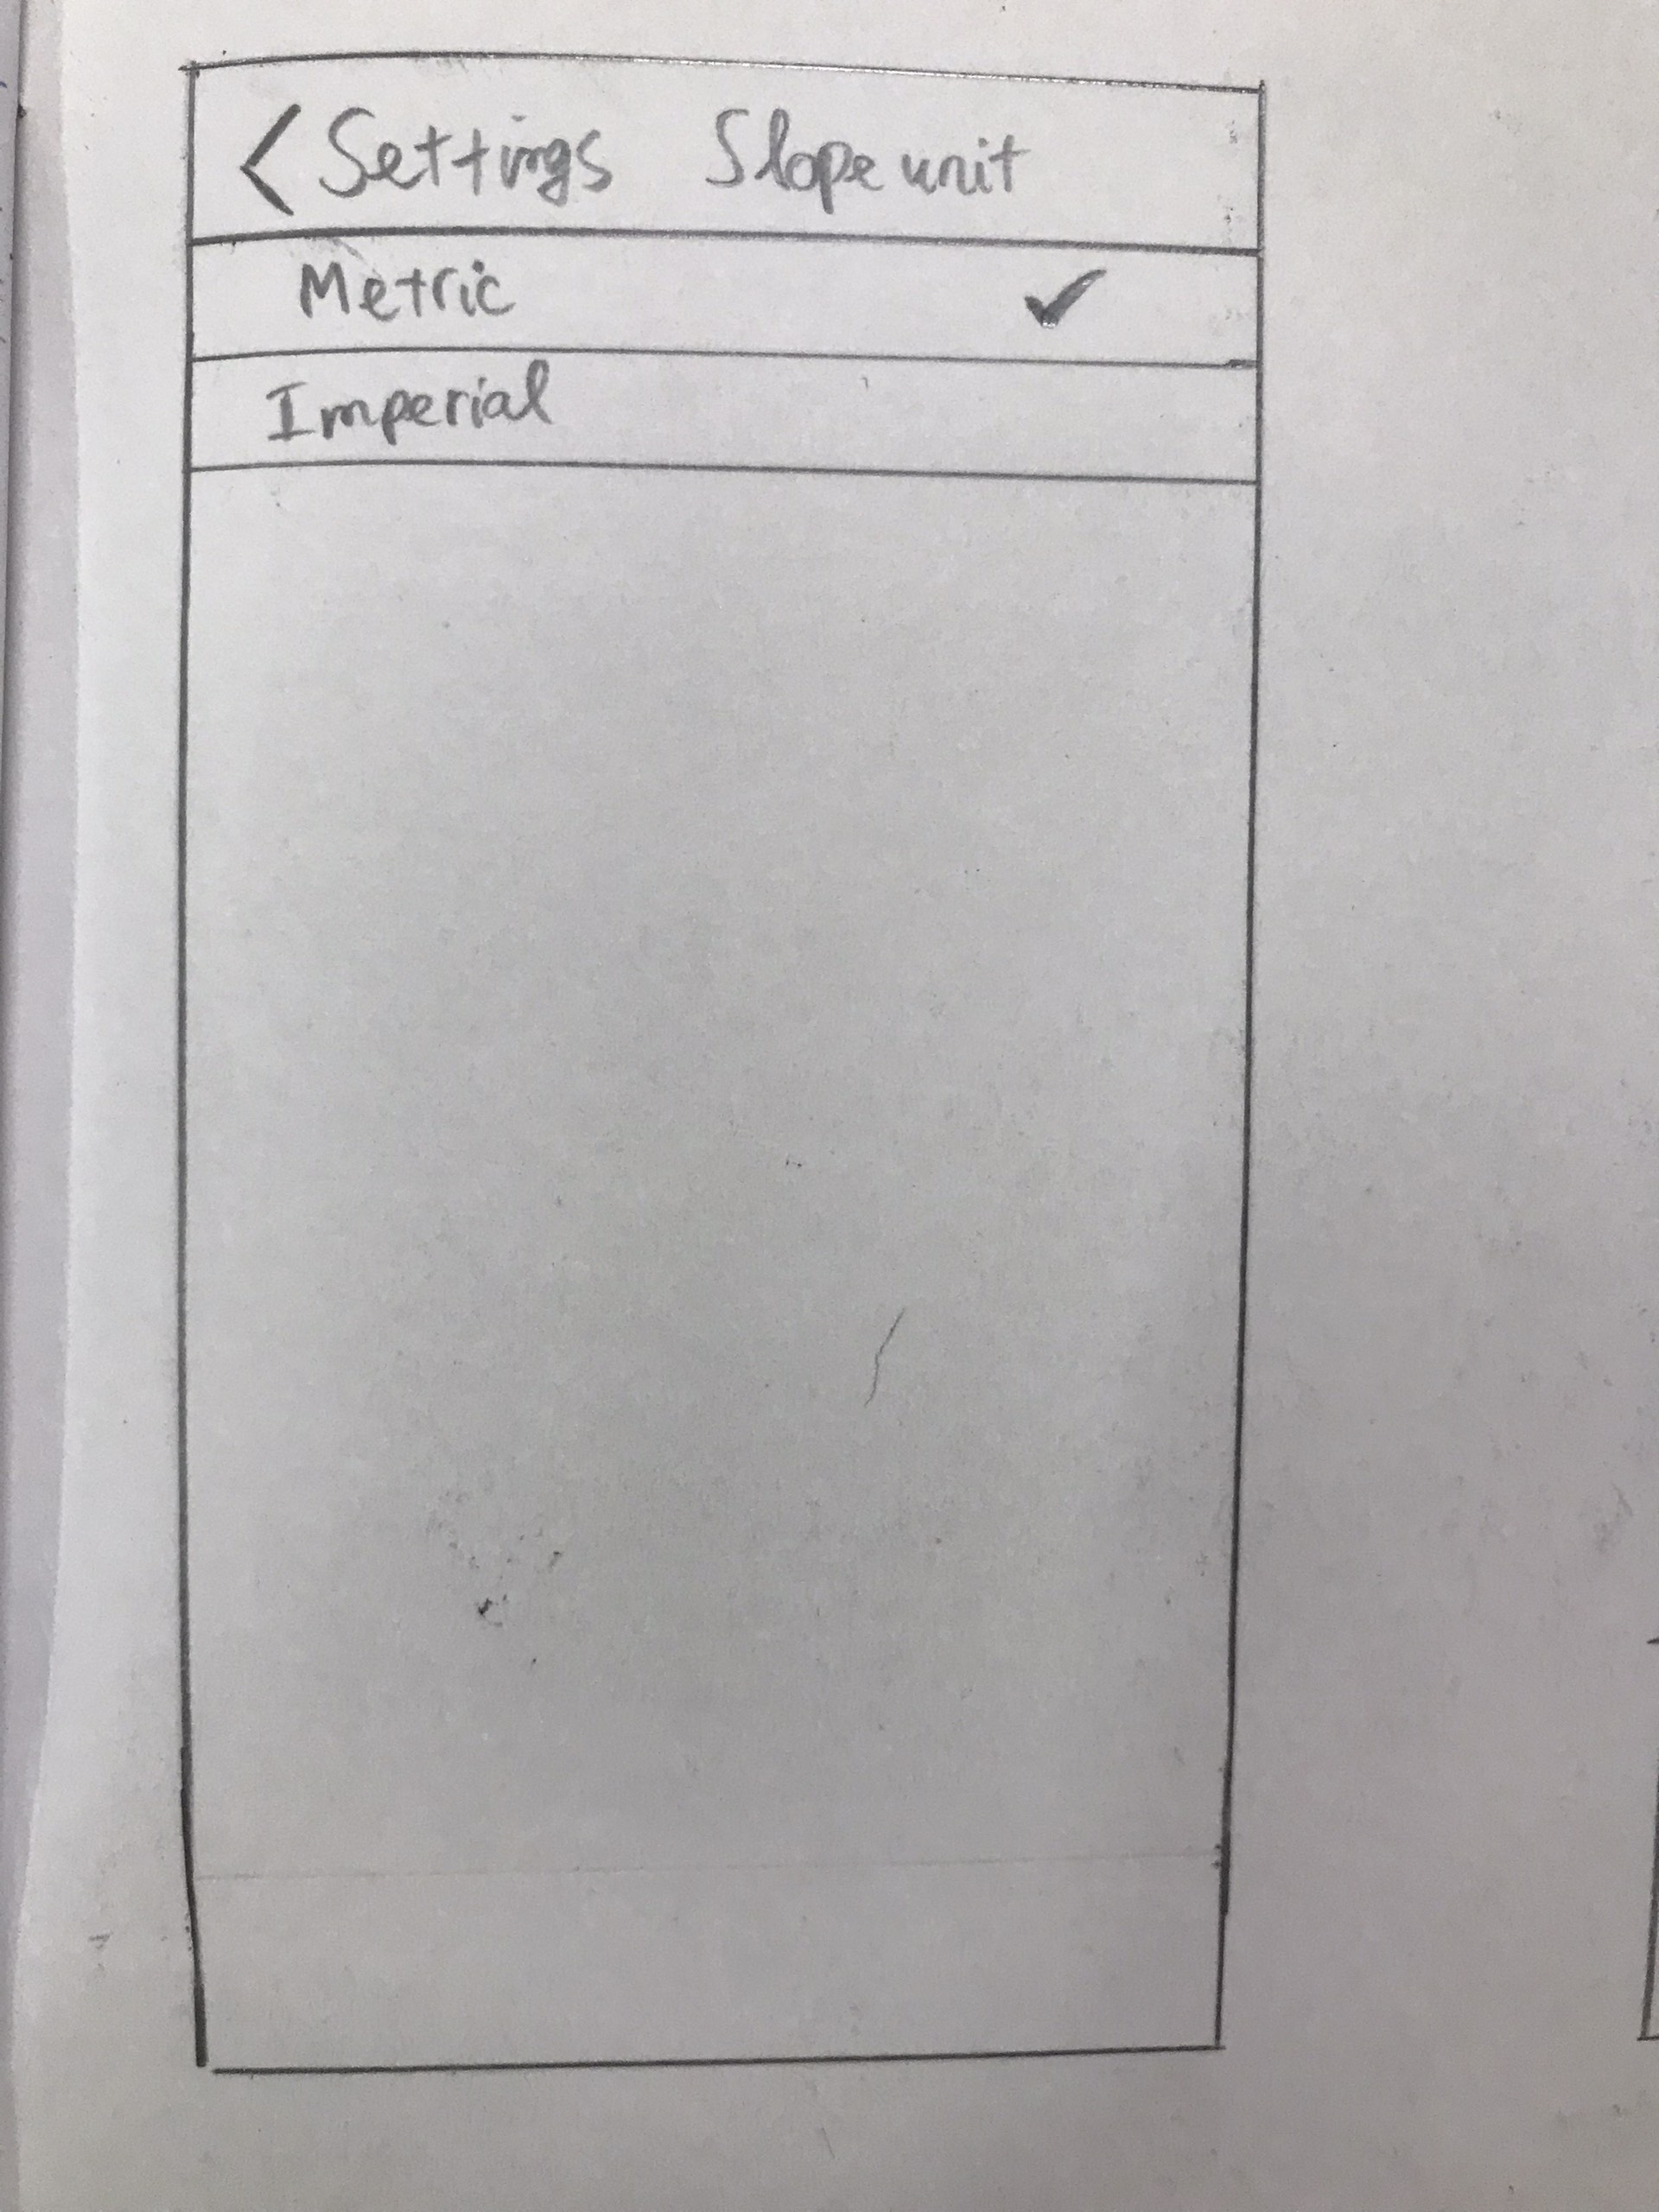 < Settings Slope unit
Metric ✓
Imperial